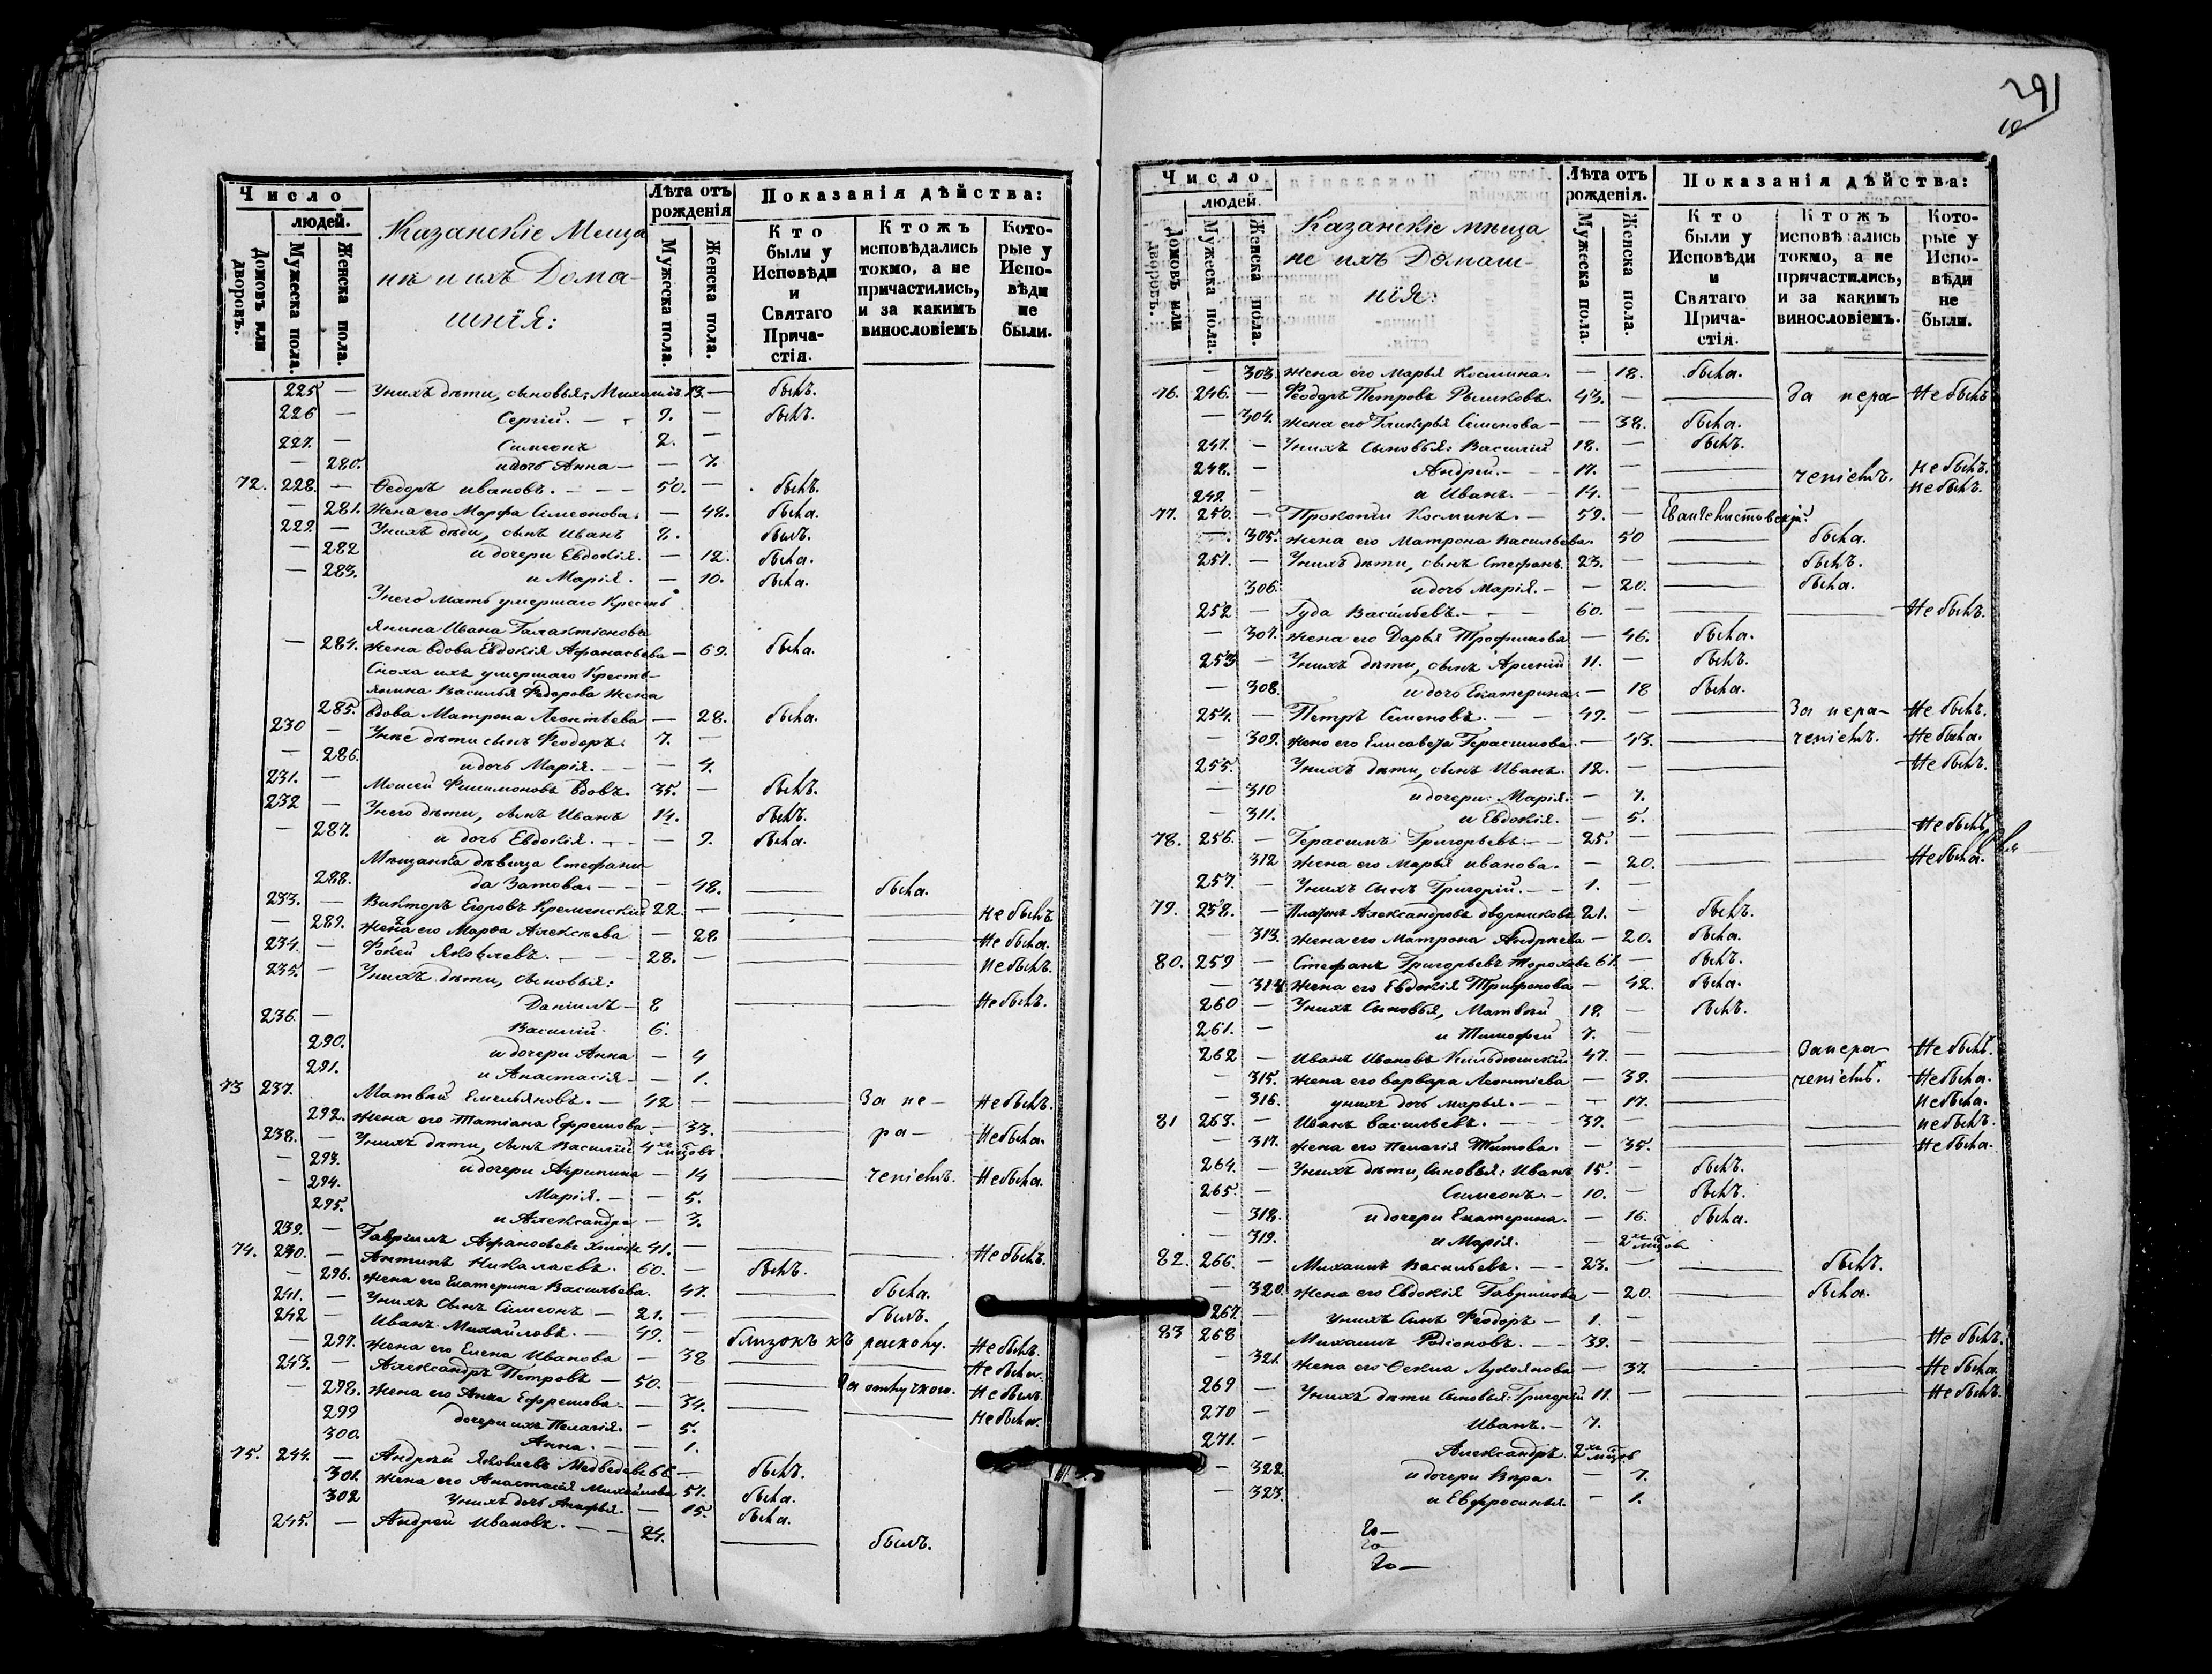 291
10
Число
людей.
Домовъ или дворовъ.
Мужеска пола.
Женска пола.
Казанскіе Меща
не и ихъ Дома-
шнія:
Лѣта отъ рожденія
Мужеска пола.
Женска пола.
Показанія дѣйства:
Кто были у Исповѣди и Святаго Прича-стія.
Ктожъ исповѣдались токмо, а не причастились, и за какимъ винословіемъ
Кото-рые у Испо-вѣди не были.
225 — Унихъ дѣти, сыновья: Михаилъ 13. — былъ.
226 — Сергій. — 9. — былъ.
227. — Симеонъ 2. —
— 280. и дочь Анна — — 7.
72. 228. — Ѳедоръ ивановъ. — — — 50. — былъ.
— 281. Жена его Марфа Симеонова. — 48. была.
229. — Унихъ дѣти, сынъ Иванъ 9. былъ.
— 282 и дочери Евдокія. — 12. была.
— 283. и Марія. — 10. была.
Унего Мать умершаго Кресть
янина Ивана Галактіонова
— 284. жена вдова Евдокія Афанасьева — 69. была.
Сноха ихъ умершаго Кресть-
янина Василья Федорова жена
285. Вдова Матрона Леонтьева — 28. была.
230 — Унее дѣти сынъ Феодоръ. 7. —
— 286. и дочь Марія. — — 4.
231. — Моисей Филимоновъ вдовъ. 35. — былъ.
232 — Унего дѣти, сынъ Иванъ 14. былъ.
— 287. и дочь Евдокія. — — 9. была.
Мѣщанка дѣвица Стефани
288. да Затова. — — — 48. — была.
233. — Викторъ Егоровъ Кременскій 22. — — — не былъ
— 289. жена его Марѳа Алексѣева — 28 — — Не была.
234. — Фокей Яковлевъ. — — 28. — — — Не былъ.
235. — Унихъ дѣти, сыновья:
Даніилъ — 8 — — Не былъ.
236. — Василій 6.
290. и дочери Анна — 4
291. и Анастасія — — 1.
73 237. Матвей Емельяновъ. — 42 — — За не — Не былъ.
292. жена его Татіана Ефремова. — 33. — ра — Не была.
238. — Унихъ дѣти, сынъ Василій 4хъ мцовъ
— 293. и дочери Агрипина — 14 — ченіемъ. Не была
— 294. Марія. — — 5.
295. и Александра — 3.
239. — Гавріилъ Афанасьевъ 41. — — — Не былъ.
74. 240. — Антипъ Николаевъ. 60. — былъ.
— 296. Жена его Екатерина Васильева. 47. — была.
241. — Унихъ сынъ Симеонъ — 21. — — былъ.
242 Иванъ Михайловъ. — 49. — близокъ къ расколу. Не былъ.
— 297. Жена его Елена Иванова — 38 — — Не была.
243. — Александръ Петровъ — 50. — — За отлучкою. Не былъ.
— 298. Жена его Анна Ефремова. — 34. — — Не была.
299 дочери ихъ Пелагія. — 5.
300. Анна. — — 1.
75. 244. — Андрей Яковлевъ Медведевъ 66 — былъ.
301. жена его Анастасія Михайлова 51. была.
302 Унихъ дочь Агафья. — 15. была.
245. — Андрей Ивановъ. — — 24. — былъ.
Число
людей.
Домовъ или дворовъ.
Мужеска пола.
Женска пола.
Казанскіе мѣща
не ихъ Домаш-
нія:
Лѣта отъ рожденія.
Мужеска пола.
Женска пола.
Показанія дѣйства:
Кто были у Исповѣди и Святаго Прича-стія.
Ктожъ исповѣдались токмо, а не причастились, и за какимъ винословіемъ.
Кото-рые у Испо-вѣди не были.
— 303. жена его Марья Космина. — 18. была.
76. 246. — Феодоръ Петровъ Рышковъ. 43. — — За нера- Не былъ
— 304. жена его Гликерья Семенова — — 38. была.
247. — Унихъ Сыновья: Василій 18. — былъ.
248. — Андрей. — — 17. — — ченіемъ. Не былъ.
249. — и Иванъ. — — 14. — — Не былъ.
77. 250. — Прокопій Косминъ. — 59. — Евангелистовскій.
— 305. жена его Матрона Васильева. 50 — была.
251. — Унихъ дѣти, сынъ Стефанъ. 23. — — былъ.
306. и дочь Марія. — — 20. — была.
252 — Гуда Васильевъ. — — 60. — — — Не былъ.
— 307. жена его Дарья Трофимова — 46. была.
253 — Унихъ дѣти, сынъ Арсеній 11. — былъ.
— 308. и дочь Екатерина. — 18 была.
254. — Петръ Семеновъ. — — 49. — — За нера- Не былъ.
— 309. жена его Елисавета Герасимова. — 43. — ченіемъ. Не была.
255. Унихъ дѣти, сынъ Иванъ. 12. — — Не былъ.
— 310 и дочери: Марія. — 7.
— 311. и Евдокія. — 5.
78. 256. — Герасимъ Григорьевъ. — — 25. — — — Не былъ
312 жена его Марья иванова. — 20. — — Не была.
257. — Унихъ сынъ Григорій. — — 1. —
79. 258. — Платонъ Александровъ дворниковъ 21. — былъ.
— 313. жена его Матрона Андрѣева — 20. была.
80. 259 — Стефанъ Григорьевъ Тороховъ 61. — былъ.
— 314 жена его Евдокія Трифонова — 42. была.
260 — Унихъ Сыновья, Матвѣй 19. — былъ.
261. — и Тимофей 7. —
262 — Иванъ Ивановъ 47. — — За нера Не былъ.
— 315. жена его варвара Леонтіева — 39. — ченіемъ. Не была.
— 316. унихъ дочь марья. — — — 17. — Не была.
81 263. — Иванъ васильевъ. — — — 39. — — — не былъ.
— 317. жена его Пелагія Титова. — 35. — — Не была.
264. — Унихъ дѣти, Сыновья: Иванъ 15. — былъ.
265. — Симеонъ. — 10. — былъ.
— 318. и дочери Екатерина. — 16. была.
— 319. и Марія. — 2хъ мцовъ
82. 266. — Михаилъ Васильевъ. — — 23. — — былъ.
— 320. жена его Евдокія Гаврилова — 20. — была.
267. — Унихъ Сынъ Феодоръ — 1. —
83 268 Михаилъ Родіоновъ. — — 39. — — — Не былъ.
— 321. жена его Лукоянова — 37. — — Не была,
269 — Унихъ дѣти Сыновья: Григорій 11. — — — Не былъ.
270 — Иванъ. — 7.
271. — Александръ. 2хъ мцовъ
— 322. и дочери Вѣра. — — 7.
— 323. и Евфросинья — 1.